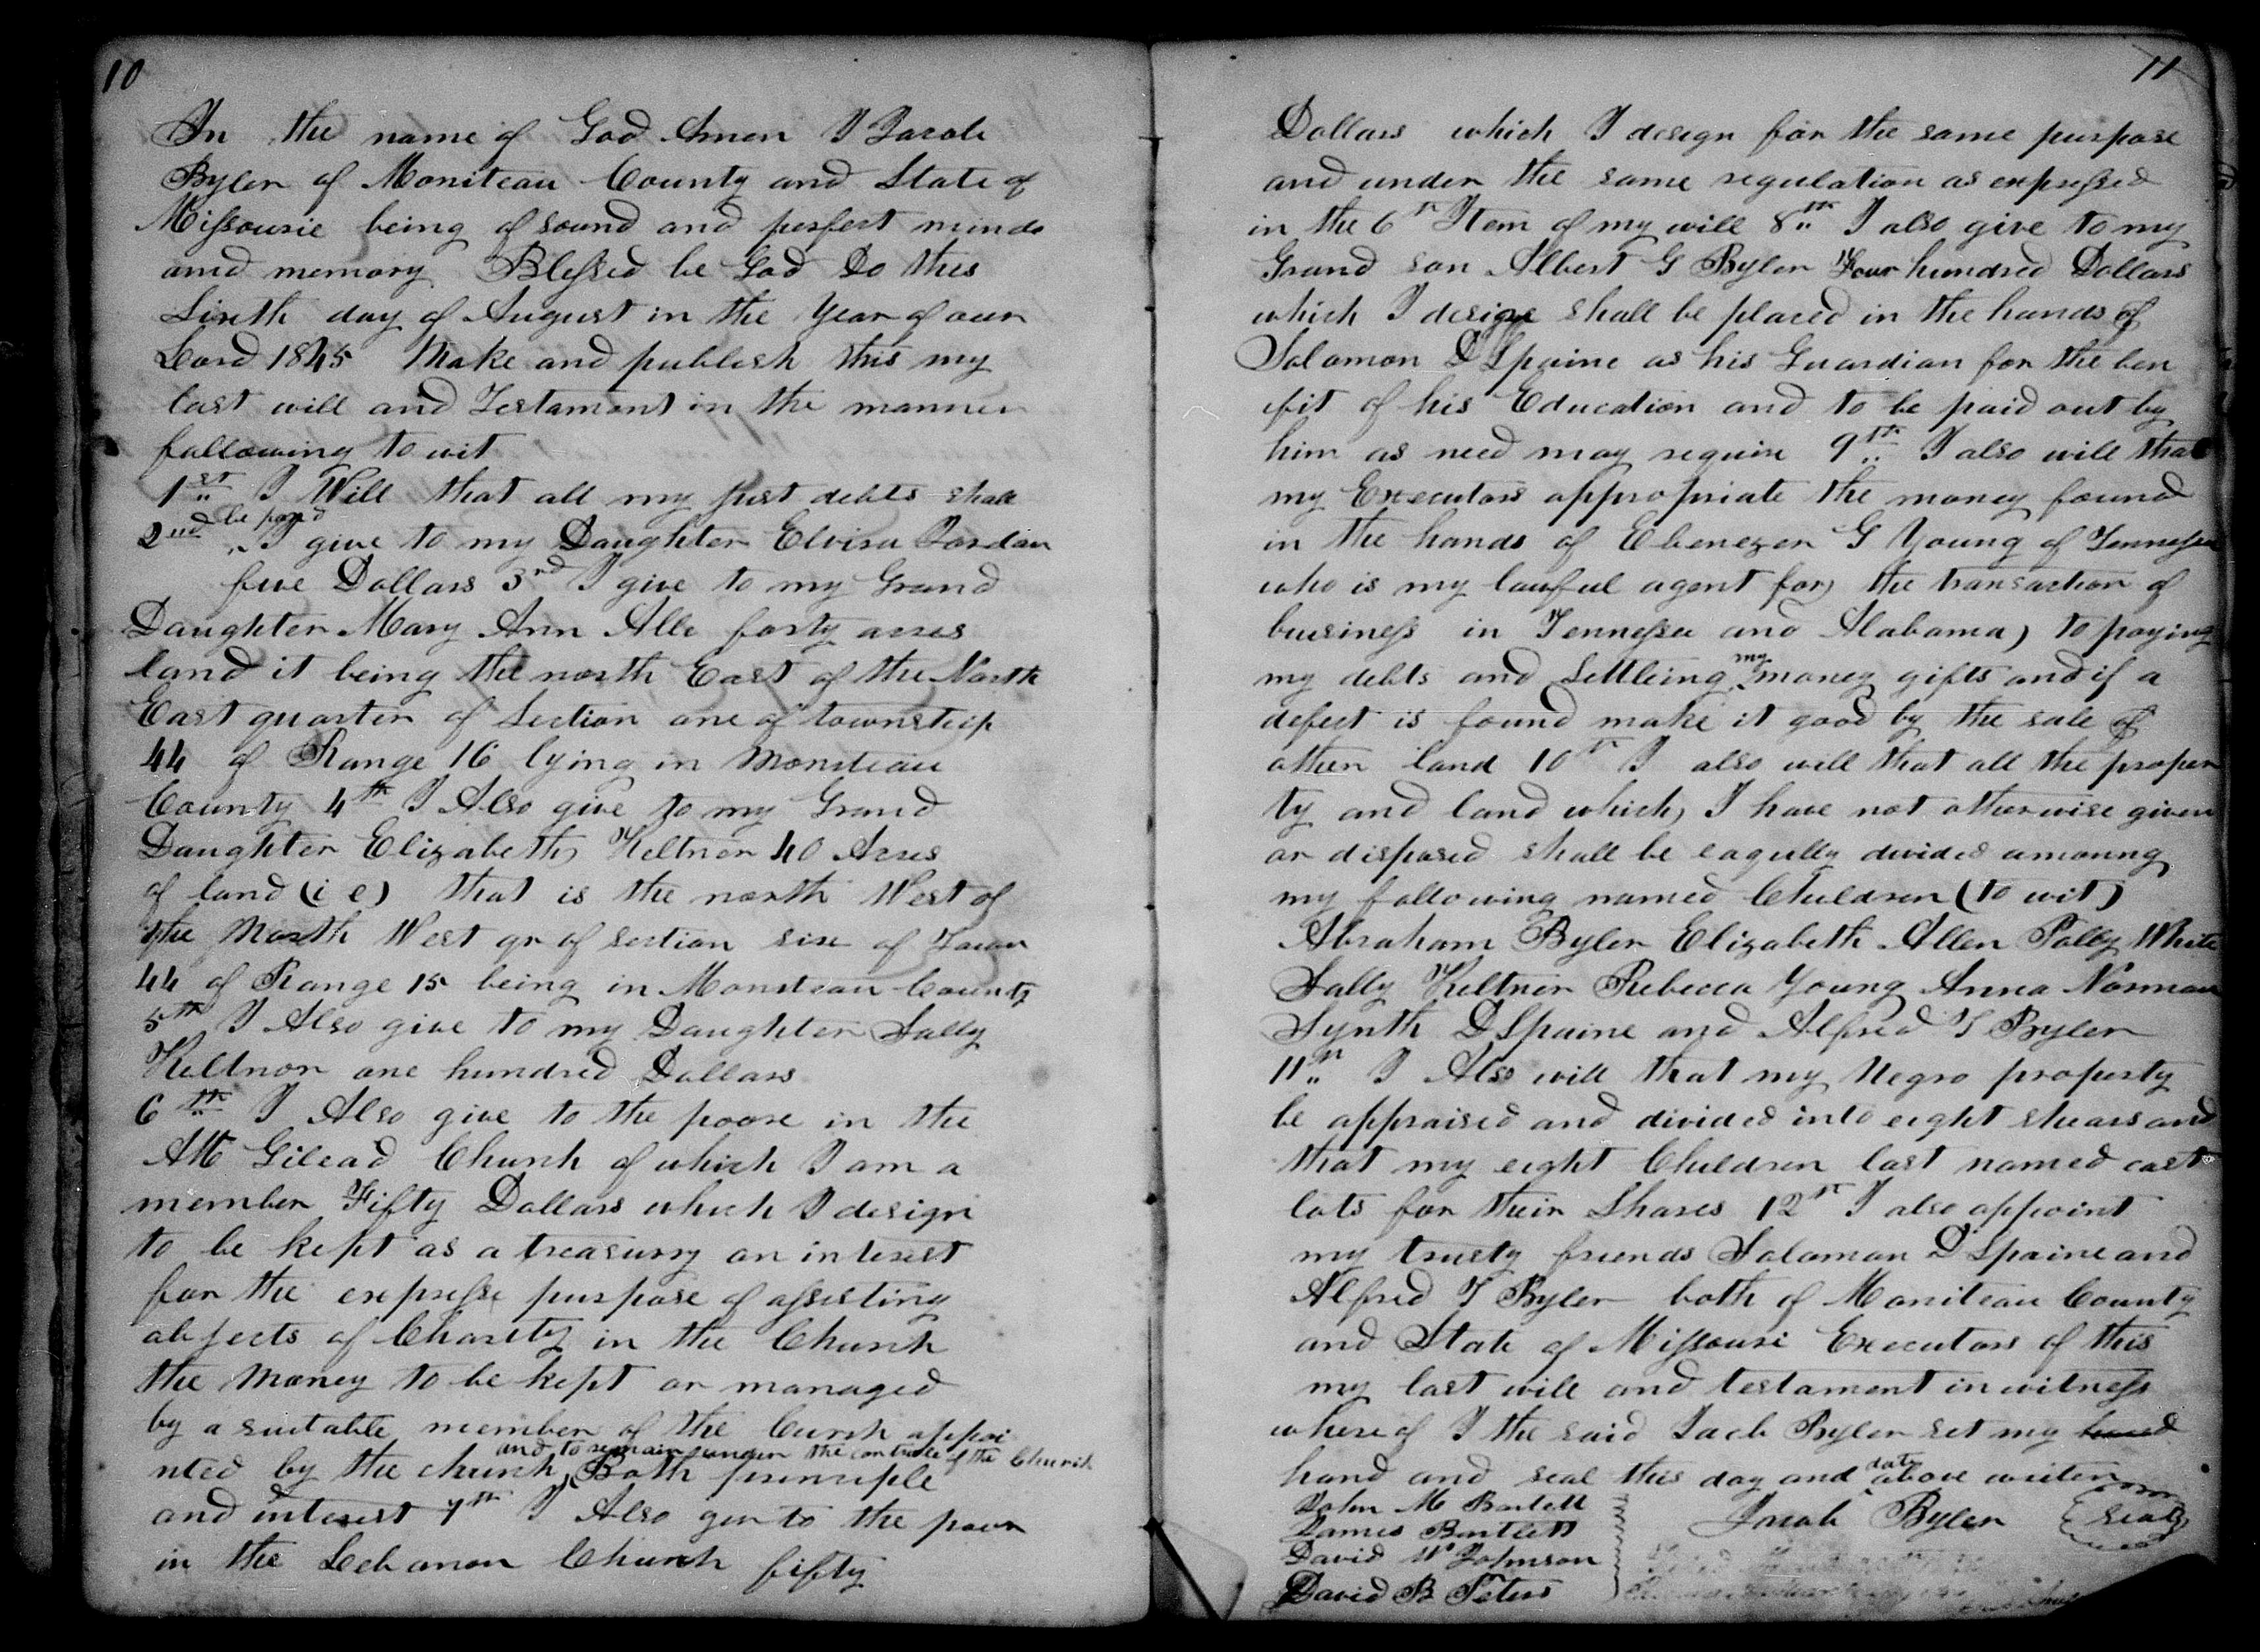 10
In the name of God Amen I Jacob
Byler of Moniteau County and State of
Missourie being of sound and perfect minde
and memory Blessed be God Do this
Sixth day of August in the Year of our
Lord 1845 Make and publish this my
last will and Testament in the manner
following to wit
1st I Will that all my just debts shall
be payd
2nd I give to my Daughter Elvira Jordan
five Dollars 3rd I give to my Grand
Daughter Mary Ann Alle forty acres
land it being the north East of the North
East quarter of Section one of township
44 of Range 16 lying in Moniteau
County 4th I Also give to my Grand
Daughter Elizabeth Keltner 40 Acres
of land (i e) that is the north West of
the North West qr of section six of Town
44 of Range 15 being in Moniteau County
5th I Also give to my Daughter Sally
Keltnor one hundred Dollars
6th I Also give to the poore in the
Mt Gilead Church of which I am a
member Fifty Dollars which I design
to be kept as a treasurry on interest
for the expresse purpose of assisting
objects of Charity in the Church
the Money to be kept or managed
by a suitable member of the Curch appoi
and to remain under the controle of the Church
nted by the church Both principle
and interest 7th I Also giv to the poor
in the Lebanon Church fifty
11
Dollars which I design for the same purpose
and under the same regulation as expressed
in the 6th Item of my will 8th I also give to my
Grand son Albert G Byler Four hundred Dollars
which I design shall be placed in the hands of
Solomon D Spaine as his Guardian for the ben
ifit of his Education and to be paid out by
him as need may require 9th I also will that
my Executors appropriate the money found
in the hands of Ebenezer G Young of Tennessee
who is my lawful agent for the transaction of
business in Tennessee and Alabama) to paying
my debts and Settleing my money gifts and if a
defect is found make it good by the sale of
other land 10th I also will that all the proper
ty and land which I have not otherwise given
or disposed shall be eaqully divided amoung
my following named Children (to wit)
Abraham Byler Elizabeth Allen Polly White
Sally Keltner Rebecca Young Anna Norman
Synth D Spaine and Alfred T Byler
11th I Also will that my Negro property
be appraised and divided into eight shears and
that my eight Children last named cast
lots for their Shares 12th I also appoint
my trusty friends Solomon D Spaine and
Alfred T Byler both of Moniteau County
and State of Missouri Executors of this
my last will and testament in witness
whereof I the said Jacb Byler set my hand
hand and seal this day and date above writen
John M Bartlett
James Bartlett
David W Johnson
David B Peters
Jacob Byler Seal